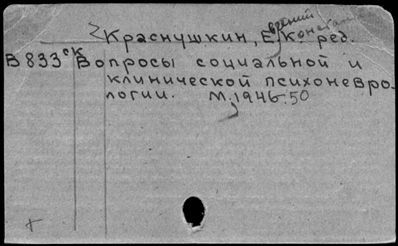 Краснушкин, Е.К. ред.
В 833 ск Вопросы социальной и
клинической психоневро-
логии. М. 1946-50